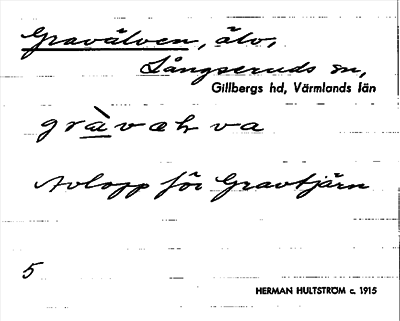 Gravälven, älv,
Långseruds sn,
Gillbergs hd, Värmlands län
gràvæhva
Avlopp för Gravtjärn
5
HERMAN HULTSTRÖM c. 1915